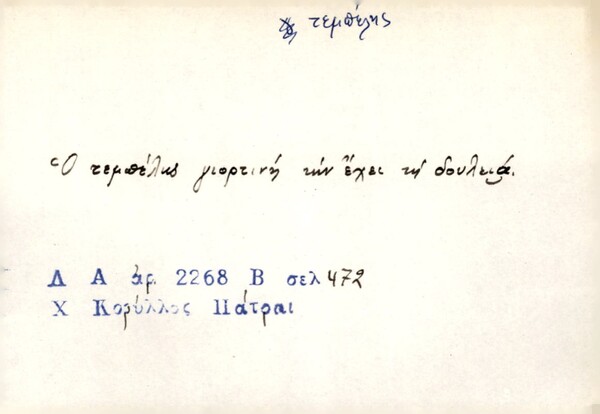 τεμπέλης
Ὁ τεμπέλης γιορτινή τήν ἔχει τή δουλειά.
Λ Α ἀρ. 2268 Β σελ 472
Χ Κορύλλος Πάτραι